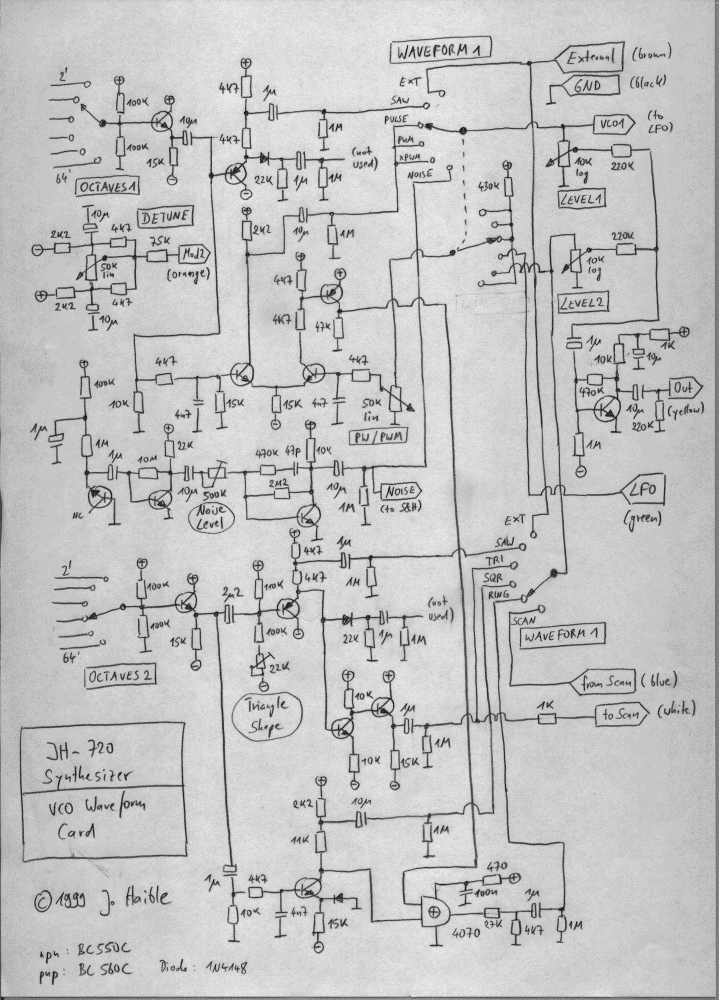 WAVEFORM 1
External (brown)
GND (black)
VCO1 (to LFO)
EXT
SAW
PULSE
PWM
XPWM
NOISE
2'
64'
100K
100K
10µ
15K
OCTAVES 1
4K7
1µ
1M
4K7
22K
1µ
1M
(not used)
10K log
220K
LEVEL1
430K
10µ
DETUNE
2K2
4K7
75K
Mod2
(orange)
50K lin
2K2
4K7
10µ
2K2
10µ
1M
4K7
4K7
47K
10K log
220K
LEVEL2
1µ
10K
1K
10µ
470K
10µ
Out
(yellow)
220K
1M
100K
1µ
1M
10K
4K7
4n7
15K
15K
4n7
4K7
50K lin
PW/PWM
1µ
10M
22K
10µ
500K
Noise Level
NC
470K
47p
10K
2M2
10µ
1M
NOISE
(to S&H)
LFO
(green)
2'
64'
100K
100K
15K
OCTAVES 2
2µ2
110K
100K
22K
Triangle Shape
4K7
4K7
1µ
1M
22K
1µ
1M
(not used)
EXT
SAW
TRI
SQR
RING
SCAN
WAVEFORM 1
from Scan (blue)
to Scan (white)
1K
10K
10K
1µ
1M
15K
2K2
10µ
1M
11K
1µ
10K
4K7
4n7
15K
470
100n
4070
27K
4K7
1µ
1M
JH-720
Synthesizer
VCO Waveform
Card
© 1999 J. Haible
npn: BC550C
pnp: BC560C Diode: 1N4148